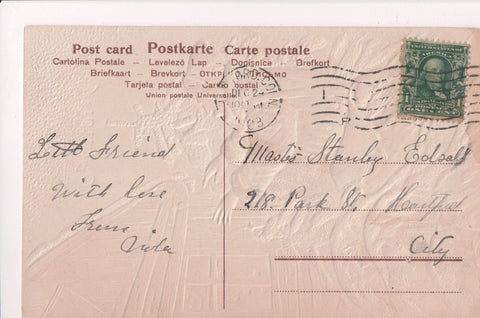 Post card Postkarte Carte postale
Cartolina Postale – Levelező Lap – Dopisnice – Brefkort
Briefkaart – Brevkort – ОТКРЫТОЕ ПИСЬМО
Tarjeta postal – Cartão postal
Union postale Universelle
DEC 24
1908
1
P
Friend
With love
From
Master Stanley Edsall
218. Park St. Hartford
City